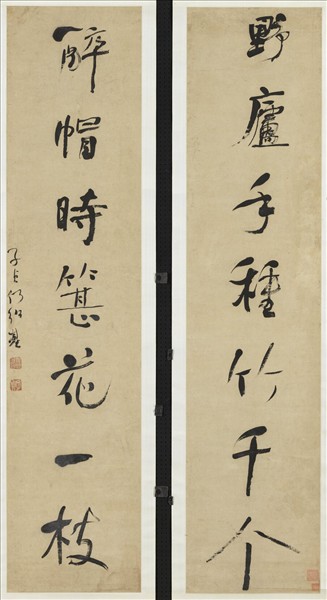 野廬手種竹千个
醉帽時簪花一枝
子貞何紹基